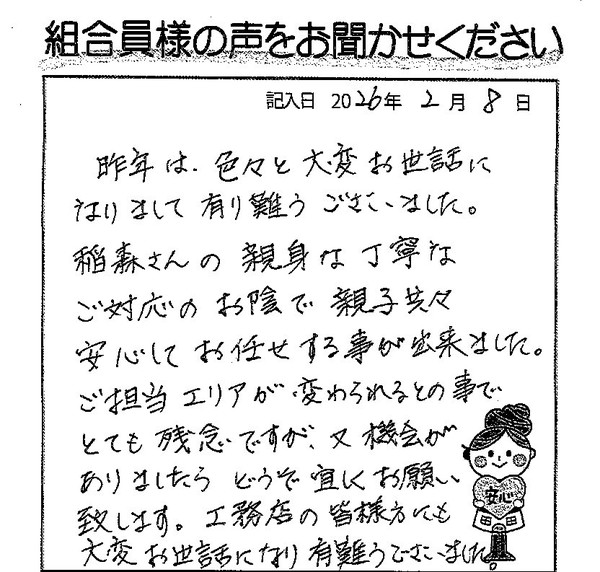 組合員様の声をお聞かせください
記入日 2026年 2月 8日
昨年は、色々と大変お世話に
なりまして有り難うございました。
稲森さんの親身な丁寧な
ご対応のお陰で親子共々
安心してお任せする事が出来ました。
ご担当エリアが変わられるとの事で
とても残念ですが、又機会が
ありましたらどうぞ宜しくお願い
致します。工務店の皆様方にも
大変お世話になり有難うございました。
安心